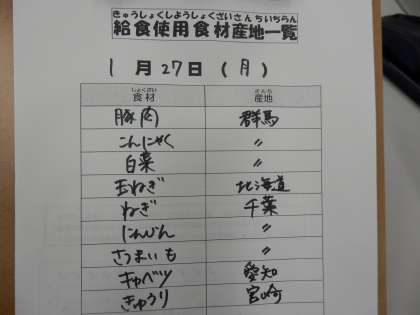 きゅうしょくしようしょくざいさんちいちらん
給食使用食材産地一覧
1月27日(月)
しょくざい さんち
食材 産地
豚肉 群馬
こんにゃく 〃
白菜 〃
玉ねぎ 北海道
ねぎ 千葉
にんじん 〃
さつまいも 〃
キャベツ 愛知
きゅうり 宮崎